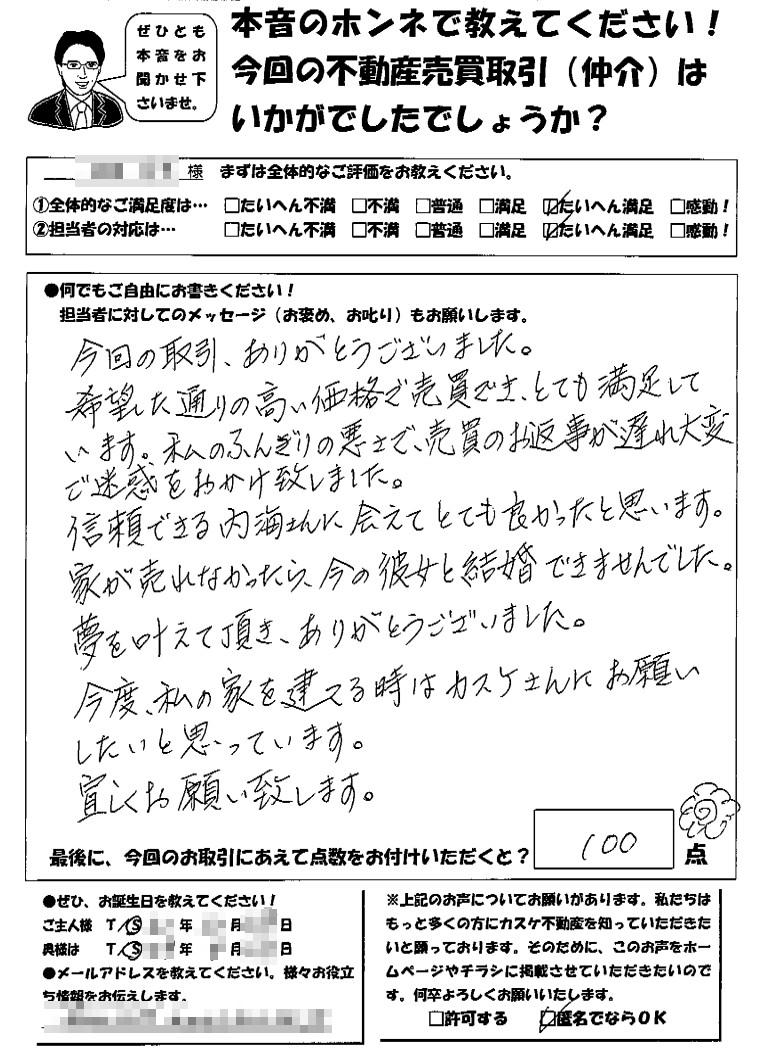 ぜひとも
本音をお
聞かせ下
さいませ。
本音のホンネで教えてください！
今回の不動産売買取引（仲介）は
いかがでしたでしょうか？
様 まずは全体的なご評価をお教えください。
①全体的なご満足度は… □たいへん不満 □不満 □普通 □満足 ☑たいへん満足 □感動！
②担当者の対応は… □たいへん不満 □不満 □普通 □満足 ☑たいへん満足 □感動！
●何でもご自由にお書きください！
担当者に対してのメッセージ（お褒め、お叱り）もお願いします。
今回の取引、ありがとうございました。
希望した通りの高い価格で売買でき、とても満足して
います。私のふんぎりの悪さで、売買のお返事が遅れ大変
ご迷惑をおかけ致しました。
信頼できる内海さんに会えてとても良かったと思います。
家が売れなかったら、今の彼女と結婚できませんでした。
夢を叶えて頂き、ありがとうございました。
今度、私の家を建てる時はカスケさんにお願い
したいと思っています。
宜しくお願い致します。
最後に、今回のお取引にあえて点数をお付けいただくと？ 100 点
●ぜひ、お誕生日を教えてください！
ご主人様 T／S 年 月 日
奥様は T／S 年 月 日
●メールアドレスを教えてください。様々お役立
ち情報をお伝えします。
※上記のお声についてお願いがあります。私たちは
もっと多くの方にカスケ不動産を知っていただきた
いと願っております。そのために、このお声をホー
ムページやチラシに掲載させていただきたいので
す。何卒よろしくお願いいたします。
□許可する ☑匿名でならOK